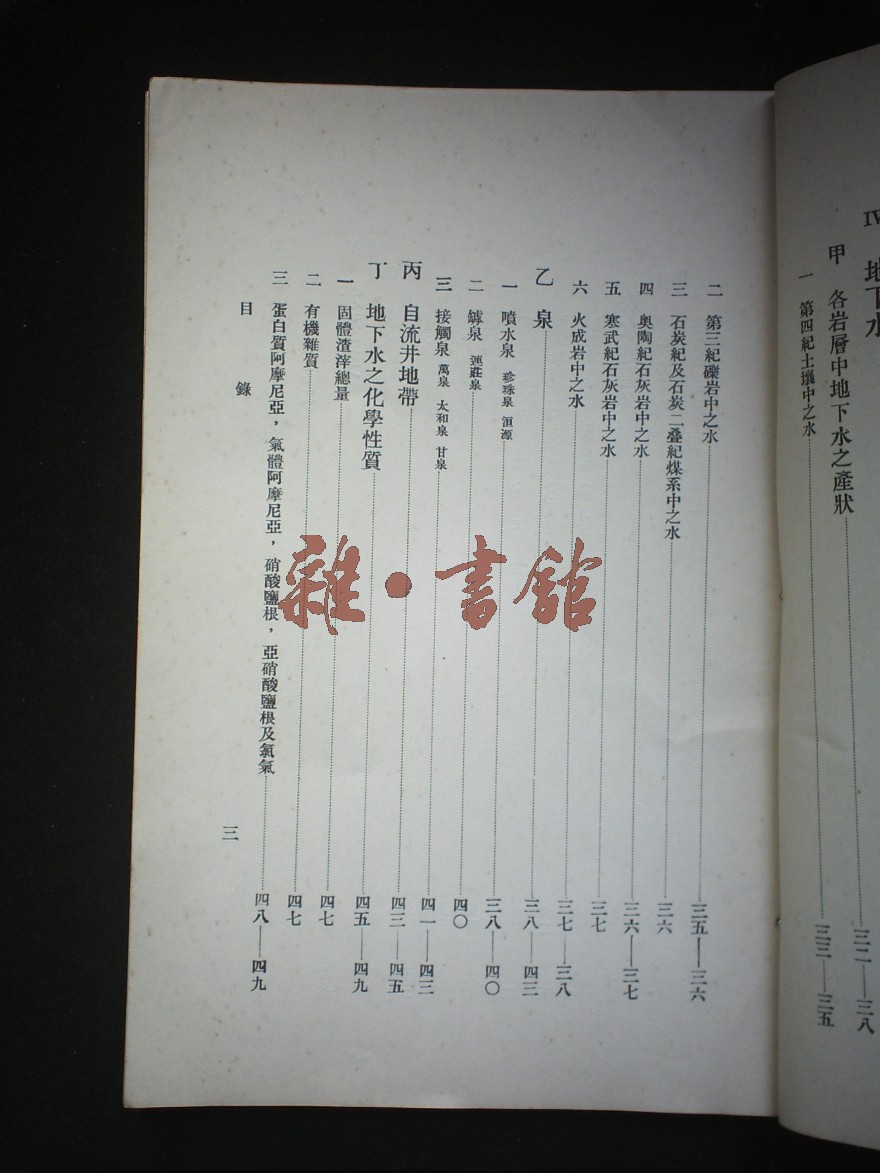 IV 地下水
甲 各岩層中地下水之產狀 三二—三八
一 第四紀土壤中之水 三三—三五
二 第三紀礫岩中之水 三五—三六
三 石炭紀及石炭二叠紀煤系中之水 三六
四 奧陶紀石灰岩中之水 三六—三七
五 寒武紀石灰岩中之水 三七
六 火成岩中之水 三七—三八
乙 泉 三八—四三
一 噴水泉 珍珠泉 洹源 三八—四〇
二 罅泉 連莊泉 四〇
三 接觸泉 萬泉 太和泉 甘泉 四一—四三
丙 自流井地帶 四三—四五
丁 地下水之化學性質 四五—四九
一 固體渣滓總量 四七
二 有機雜質 四七
三 蛋白質阿摩尼亞，氣體阿摩尼亞，硝酸鹽根，亞硝酸鹽根及氯氣 四八—四九
目錄
三
雜·書館